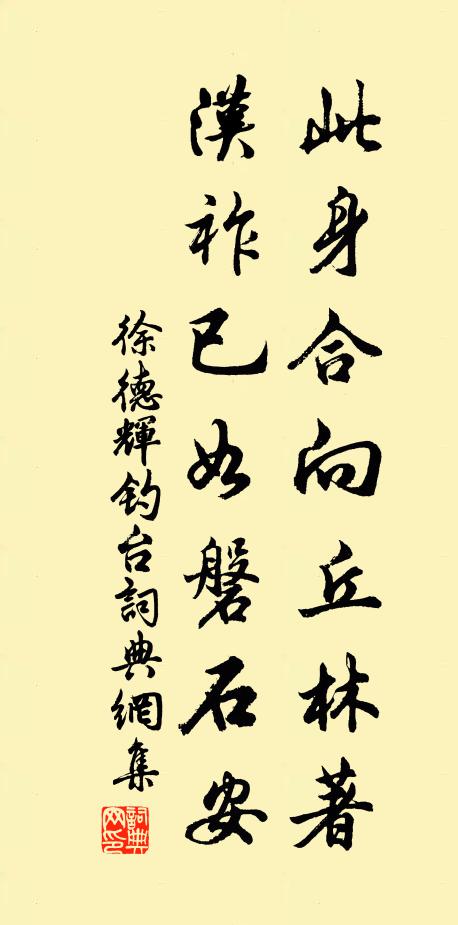 此身合向丘林著
漢祚已如磐石安
徐德輝釣台詞典網集
詞典网印